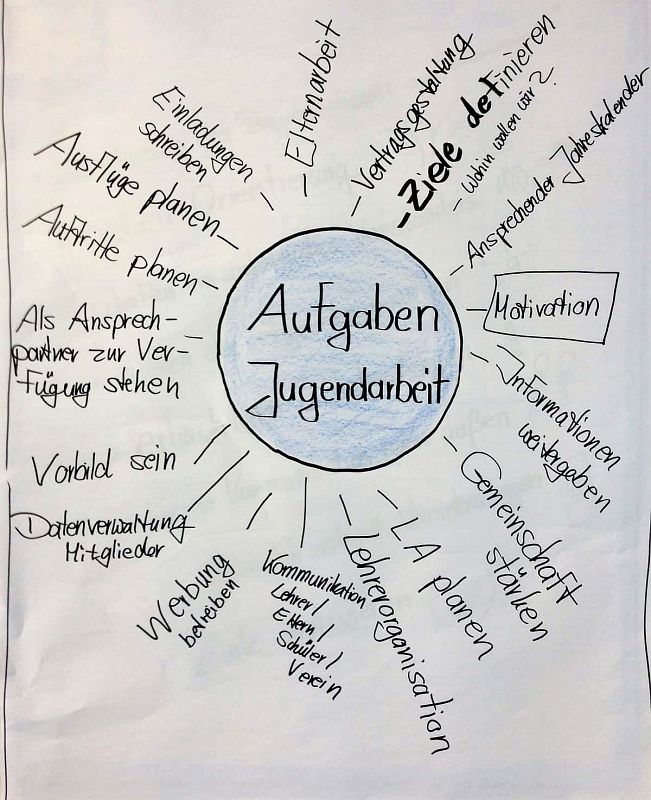 Aufgaben
Jugendarbeit
Elternarbeit
Vertragsgestaltung
-Ziele definieren
Wohin wollen wir?
Ansprechender Jahreskalender
Motivation
Informationen
weitergeben
Gemeinschaft
stärken
LA planen
Lehrerorganisation
Kommunikation
Lehrer/
Eltern/
Schüler/
Verein
Werbung
betreiben
Datenverwaltung
Mitglieder
Vorbild sein
Als Ansprech-
partner zur Ver-
fügung stehen
Auftritte planen
Ausflüge planen
Einladungen
schreiben